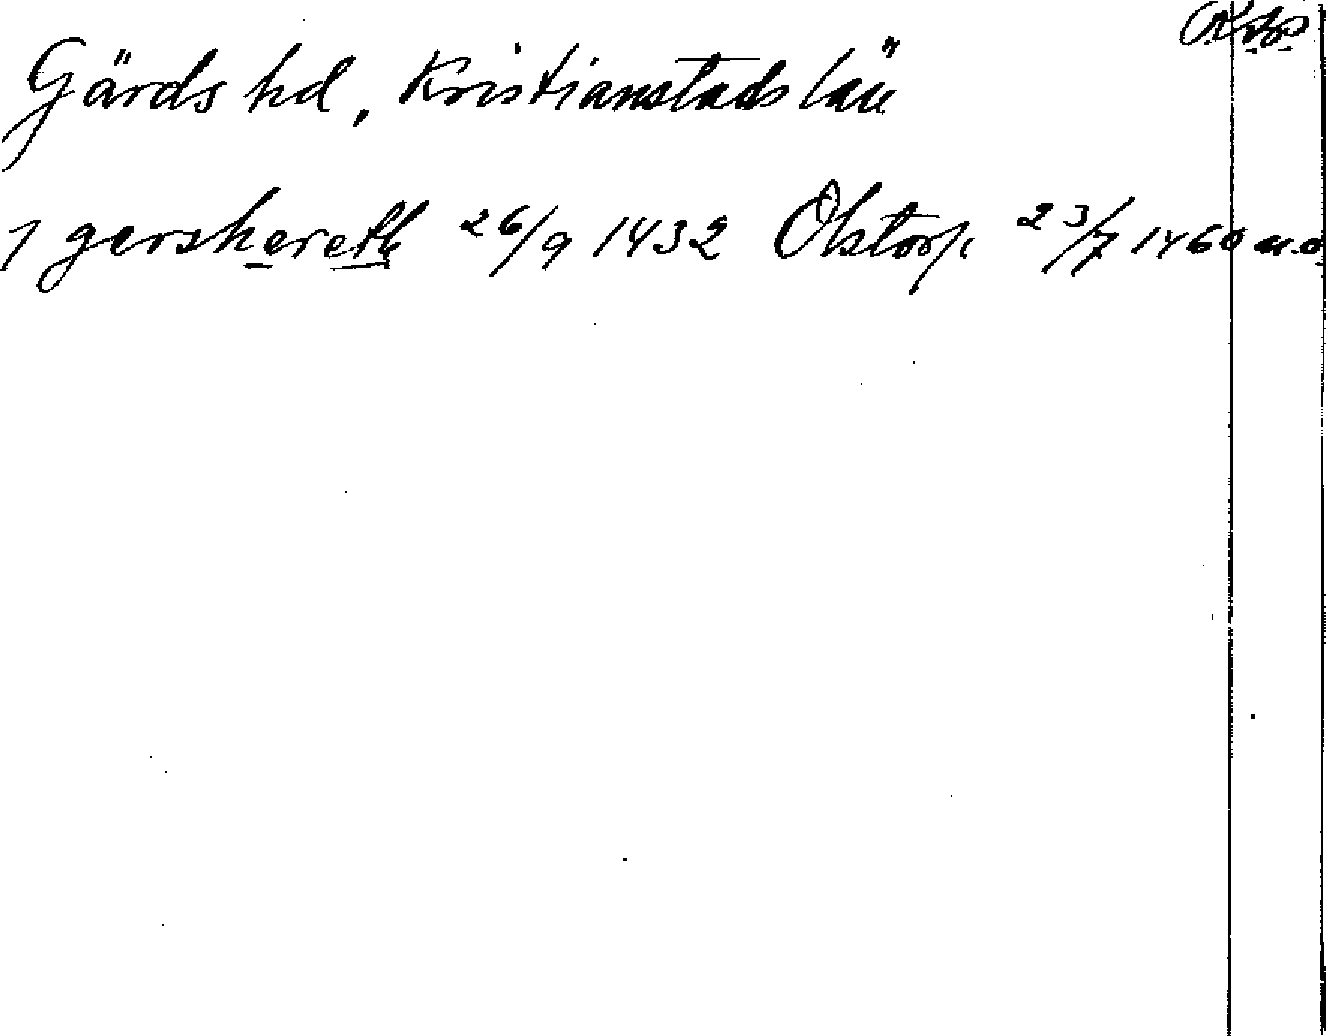 Gärds hd, Kristianstads län
J gershereth 26/9 1432 Olstorp 23/7 1460 m.o.